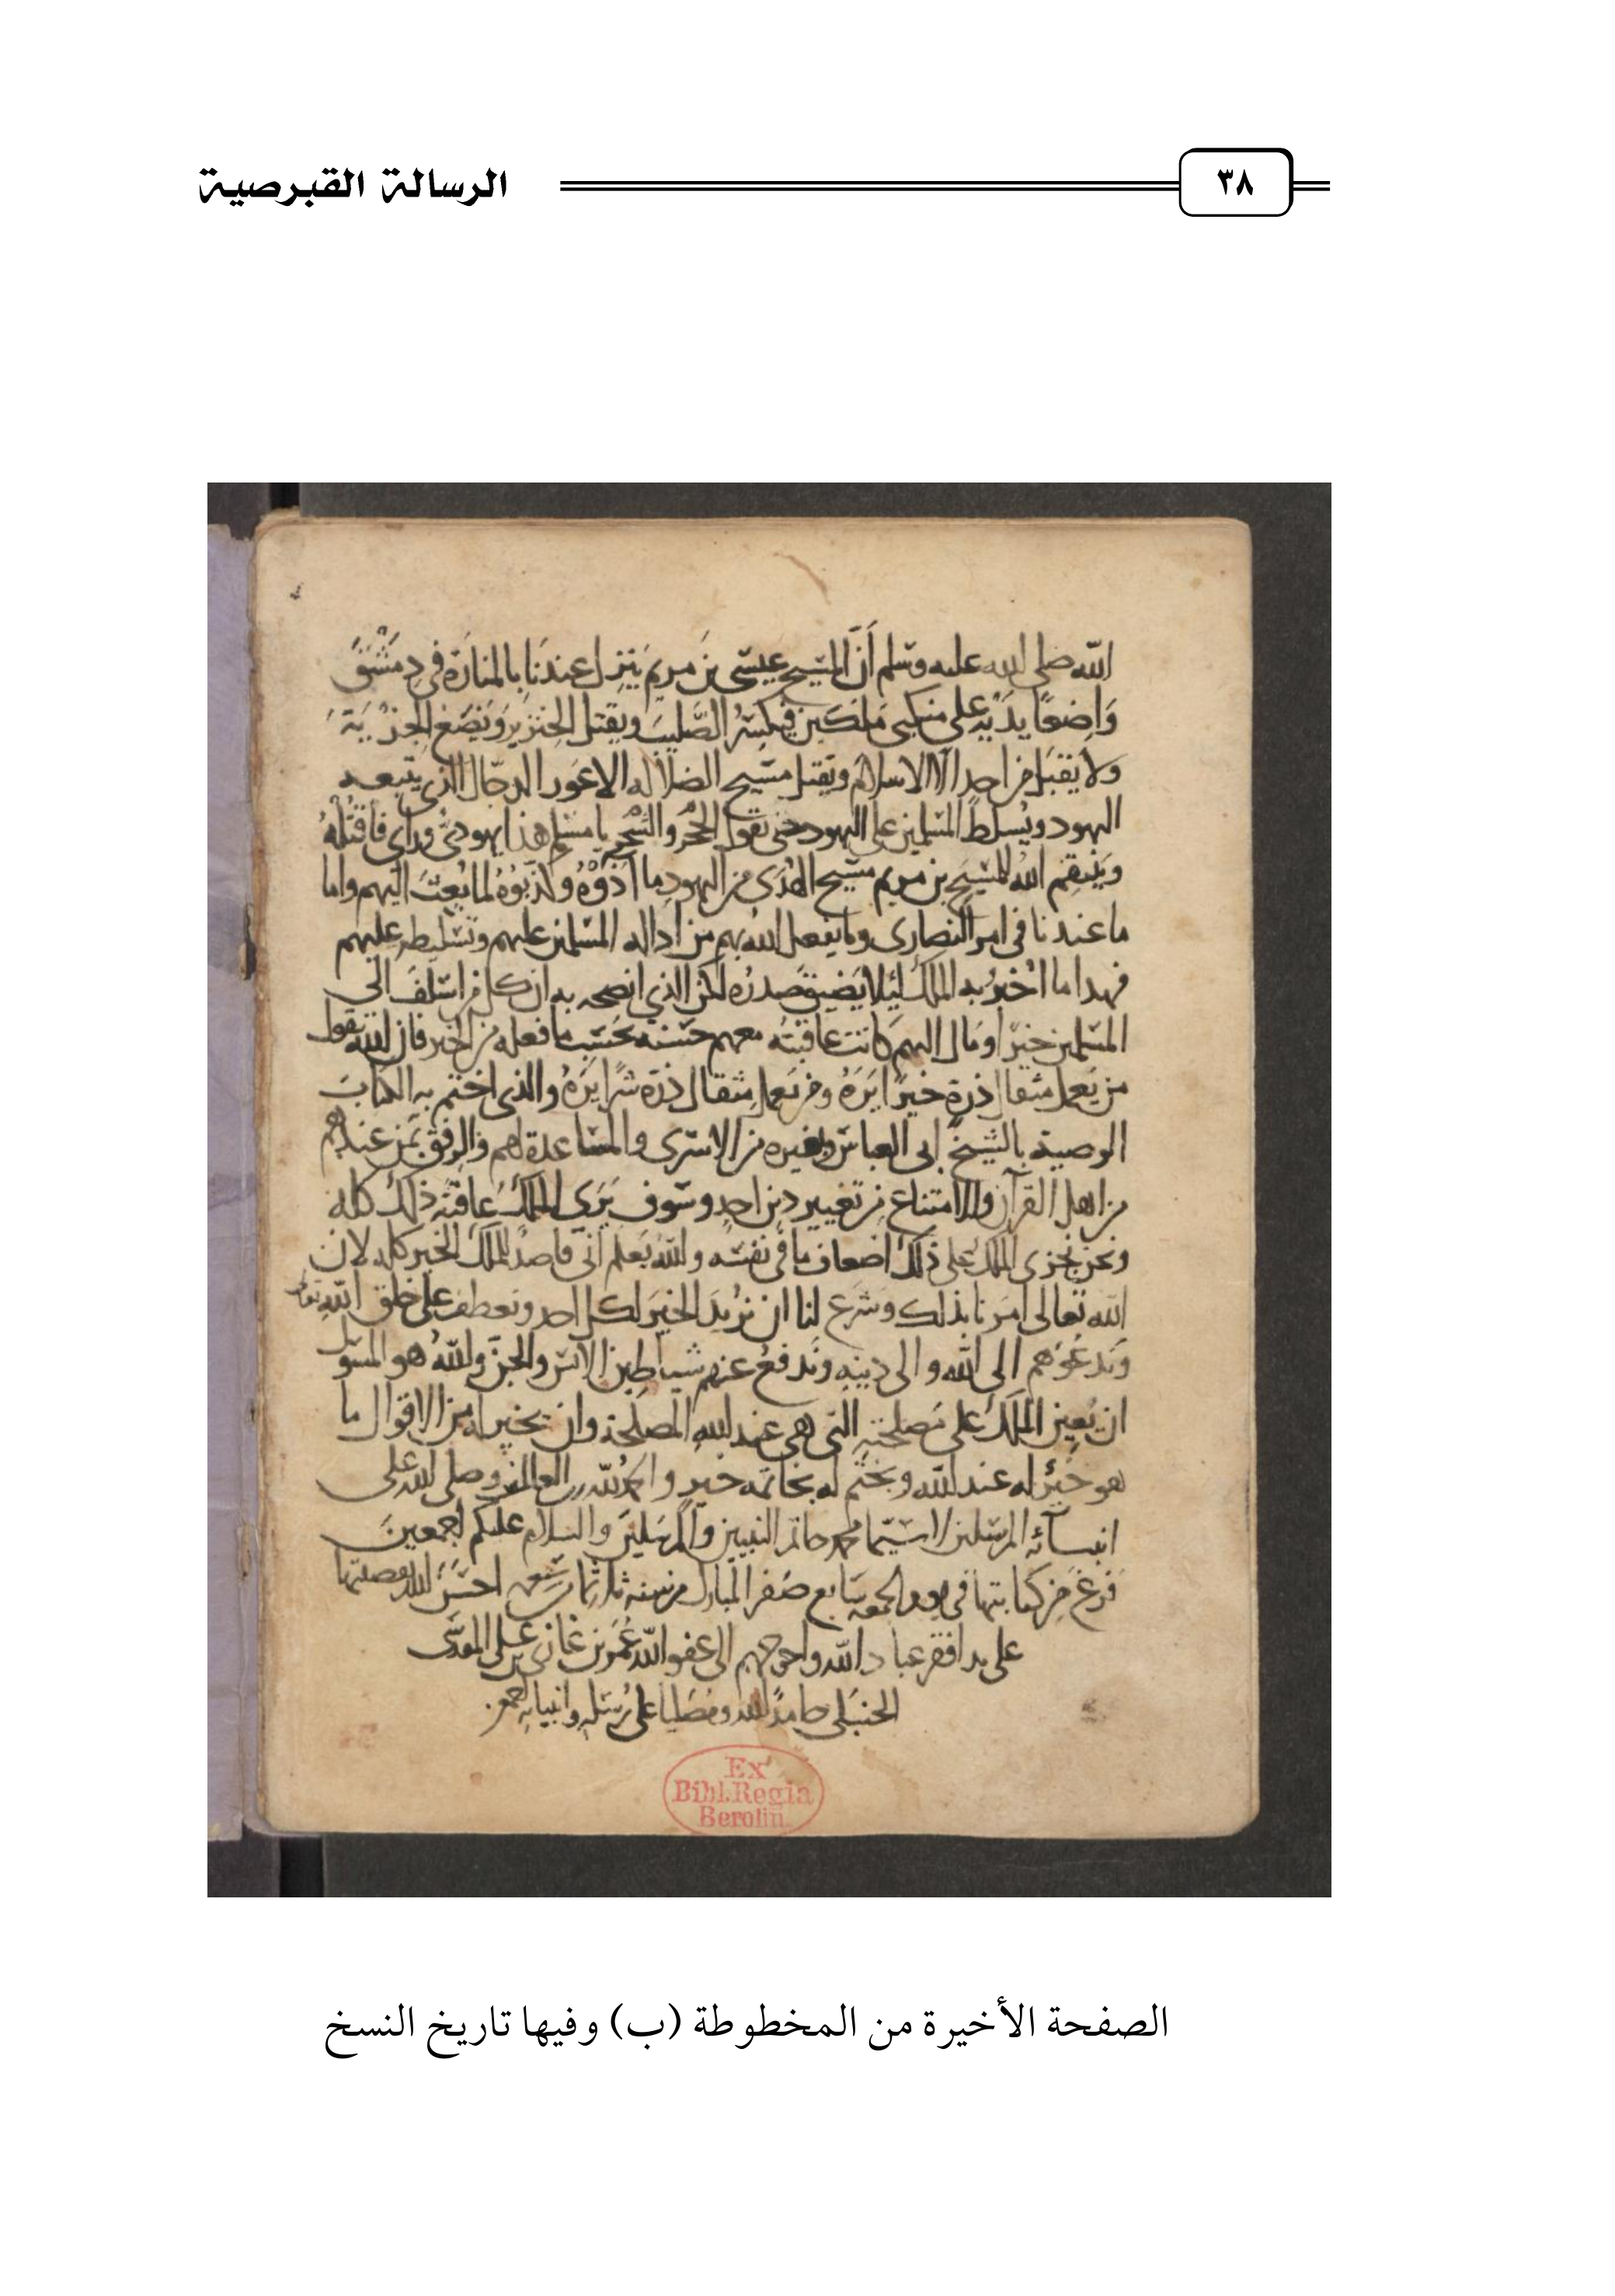 الرسالة القبرصية
٣٨
الله صلى الله عليه وسلم أَنَّ المسيح عيسى بن مريم ينزل عندنا بالمنارة في دمشق
وَاضِعًا يديه على منكبي ملكين فيكسر الصَّليب ويقتل الخنزير ويَضع الجزية
ولا يقبل من احد الا الاسلام ويقتل مسيح الضلاله الاعور الدجال الذي يتبعه
اليهود ويُسلط المسلمين على اليهود حتى يقول الحجر والشجر يا مسلم هذا يهوديٌّ وراي فاقتله
وينتقم الله للمسيح بن مريم مسيح الهدى من اليهود ما اذَوْهُ وكذبوُهُ لما بُعِثَ اليهم واما
ما عندنا في امر النصارى وما يفعل الله بهم من اداله المسلمين عليهم وتسليطهم عليهم
فهدا ما اُخبر به الملك ليلا يَضيق صدره لكن الذي انصحه به ان كل من اسلف الى
المسلمين خيرًا او مال اليهم كانت عاقبتهُ معهم حسنه بحسب ما فعله من الخير فان الله يقول
من يَعمل مثقال ذرة خيرًا يَرَهُ ومن يعمل مثقال ذرة شرًا يرَهُ والذي اختم به الكتابَ
الوصية بالشيخ ابى العباس وبغيره من الاسرى والمساعدة لهم والرفق بمن عندهم
من اهل القرآن والامتناع من تغيير دين احد وسوف يَرَى الملك عاقبَةَ ذلك كله
ونحن نجزى الملك على ذلك اضعاف ما في نفسه والله يعلم اني قاصدٌ للملك الخير كله لان
الله تعالى امرنا بذلك وشرَعَ لنا ان نريد الخيرَ لكل احد ونعطف على خلق الله تعالى
وَندعُوهم الى الله والى دينِهِ ونَدفعُ عنهم شياطين الانس والجن والله هو المسوول
ان يُعين الملك على مَصلحتهِ التي هي عند اللهِ المصلحة وان يخير له من الاقوال ما
هو خَيْرٌ له عند الله ويختم له بخاتمه خير والحمد لله رب العالمين وصلى الله على
انبيائه المرسلين لا سيما محمد خاتم النبيين والمرسلين والسلام عليكم اجمعين
فرغ من كتابتها في يوم الجمعه سابع صَفر المبارك من سنه احسَنَ الله
على يد افقر عباد الله واحوجهم الى عفو الله عمر بن غازي بن على المقدسى
الحنبلى حامدًا لله ومصليا على رُسله وانبيايه
Ex
Bibl. Regia
Berolin.
الصفحة الأخيرة من المخطوطة (ب) وفيها تاريخ النسخ